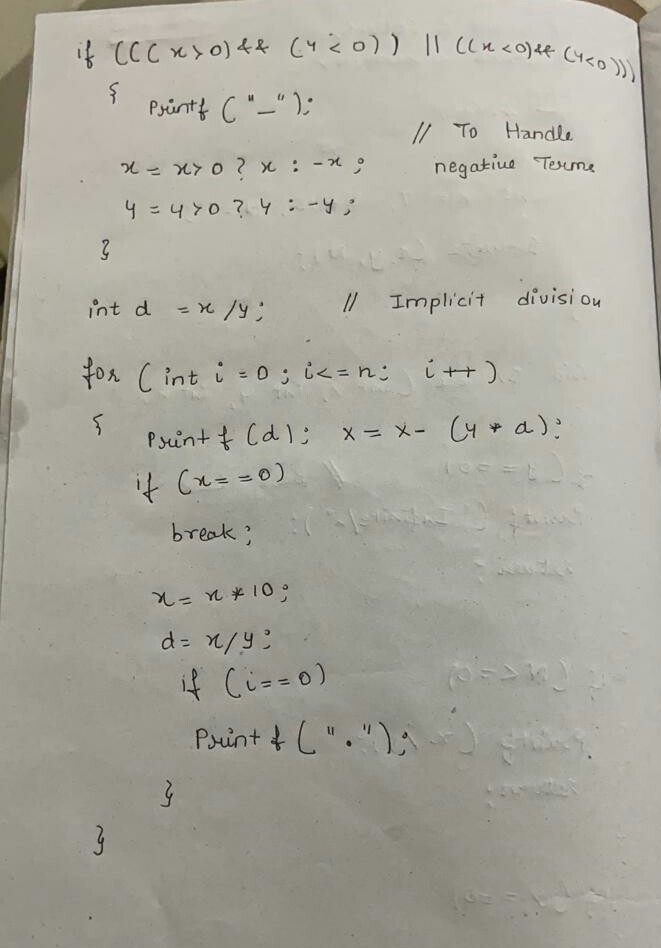 if (((x>0)&& (y<0)) || ((x<0)&& (y<0)))
{
printf ("_");
// To Handle
negative Terms
x = x>0 ? x : -x;
y = y>0 ? y : -y;
}
int d = x/y; // Implicit division
for (int i = 0; i<=n; i++)
{
printf (d); x = x- (y * d);
if (x==0)
break;
x = x*10;
d= x/y;
if (i==0)
printf (".");
}
}